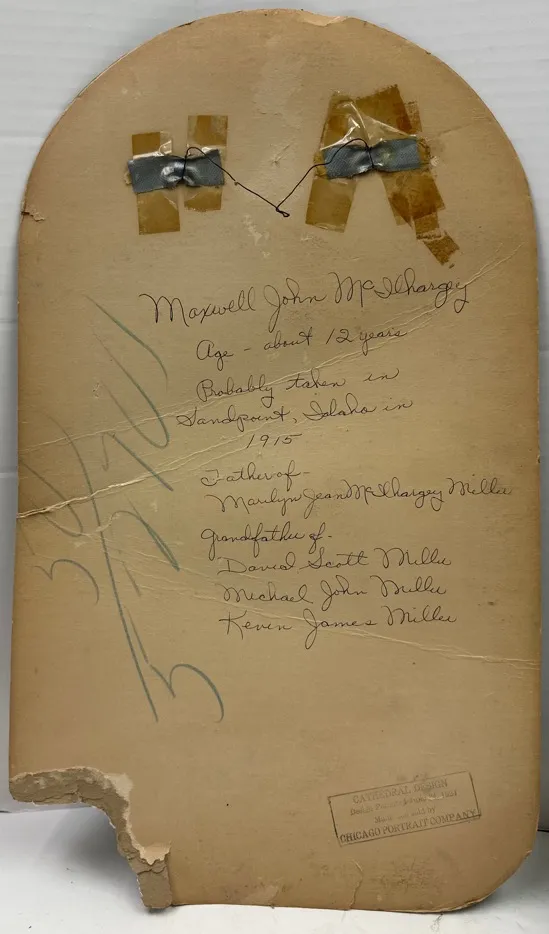 Maxwell John McIlhargey
Age - about 12 years
Probably taken in
Sandpoint, Idaho in
1915
Father of -
Marilyn Jean McIlhargey Miller
grandfather of -
David Scott Miller
Michael John Miller
Kevin James Miller
CATHEDRAL DESIGN
Made and sold by
CHICAGO PORTRAIT COMPANY